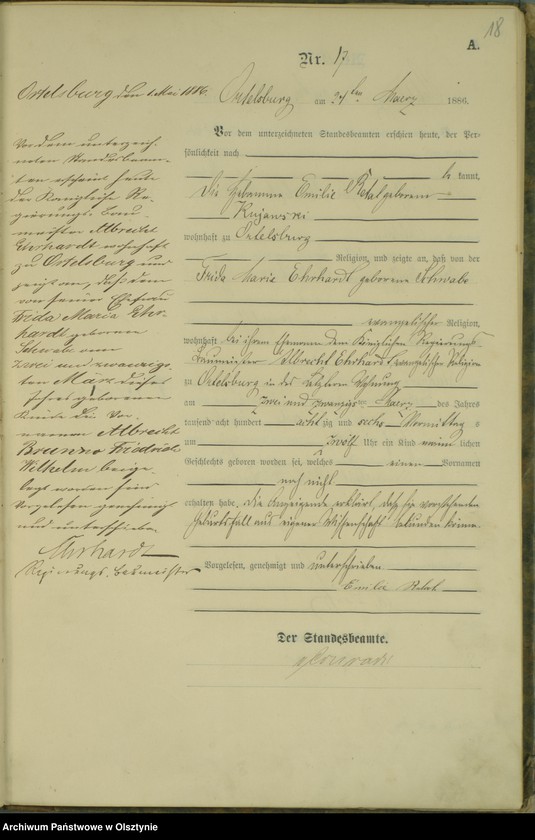 18
A.
Nr. 17
Ortelsburg am 24ten Maerz 1886.
Vor dem unterzeichneten Standesbeamten erschien heute, der Per-
sönlichkeit nach
be kannt,
die Hebamme Emilie geborene
Kujawski
wohnhaft zu Ortelsburg
Religion, und zeigte an, daß von der
Frida Maria Ehrhardt geborene Schwabe
evangelischer Religion,
wohnhaft bei ihrem Ehemanne dem Königlichen Regierungs-
Baumeister Albrecht Ehrhardt evangelischer Religion
zu Ortelsburg in des Letztern Wohnung
am zwei und zwanzigsten Maerz des Jahres
tausend acht hundert acht zig und sechs Vormittags
um zwölf Uhr ein Kind männlichen
Geschlechts geboren worden sei, welches einen Vornamen
noch nicht
erhalten habe. Die Anzeigende erklärt, daß sie vorstehenden
Geburtsfall aus eigener Wissenschaft bekunden könne.
Vorgelesen, genehmigt und unterschrieben
Emilie
Der Standesbeamte.
Ortelsburg den 1. Mai 1886.
Vor dem unterzeich-
neten Standesbeam-
ten erschien heute
der Königliche Re-
gierungs-Bau-
meister Albrecht
Ehrhardt wohnhaft
zu Ortelsburg und
zeigte an, daß dem
von seiner Ehefrau
Frida Maria Ehr-
hardt geborenen
Schwabe am
zwei und zwanzigs-
ten Maerz dieses
Jahres geborenen
Kinde die Vor-
namen Albrecht
Bruno Friedrich
Wilhelm beige-
legt worden seien
Vorgelesen genehmigt
und unterschrieben
Ehrhardt
Regierungs-Baumeister
Archiwum Państwowe w Olsztynie